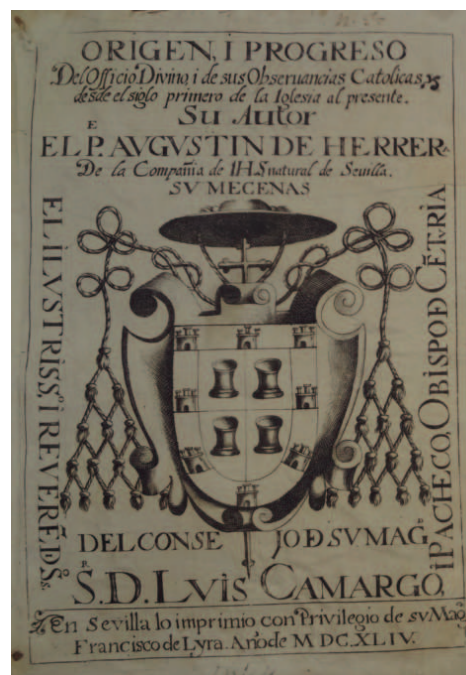 ORIGEN, I PROGRESO
Del Officio Divino, i de sus Observancias Catolicas,
desde el siglo primero de la Iglesia al presente.
Su Autor
E
EL P. AVGVSTIN DE HERRERA
De la Compañia de IHS natural de Sevilla.
SV MECENAS
EL ILVSTRISS.º I REVERẼD.S
DEL CONSEJO D SV MAG.
S.D. LVIS CAMARGO,
I PACHECO, OBISPO D CẼTVRIA
En Sevilla lo imprimio con Privilegio de sv Mag.
Francisco de Lyra. Año de M DC.XLIV.